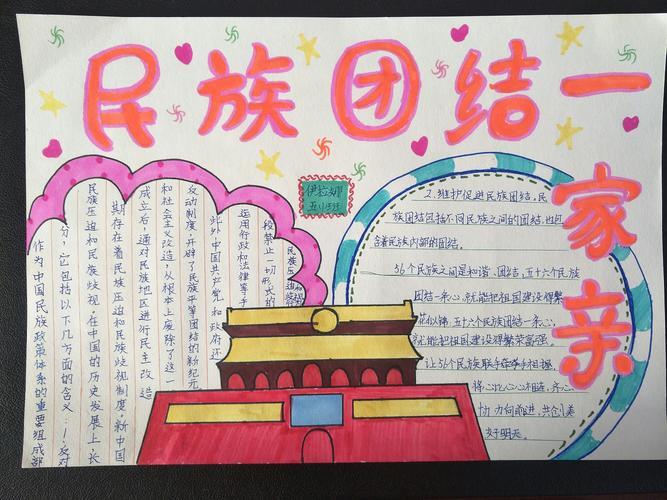 民族团结一
家亲
伊拉娜
作为中国民族政策体系的重要组成部
分,它包括以下几方面的含义:1.反对
民族压迫和民族歧视.在中国的历史发展上,长
期存在着民族压迫和民族歧视制度.新中国
成立后,通过对民族地区进行民主改造
和社会主义改造,从根本上废除了这一
反动制度,开辟了民族平等团结的新纪元.
此外中国共产党和政府还
运用行政和法律等手
段禁止一切形式的
民族压迫
2.维护促进民族团结.民
族团结包括不同民族之间的团结,也包
含着民族内部的团结.
56个民族之间是和谐、团结,五十六个民族
团结一条心,就能把祖国建设得繁
花似锦.五十六个民族团结一条心,
就能把祖国建设得繁荣富强.
让56个民族联手牵手相握,
将心比心心相连.齐心
协力向前进,共创美
好明天.